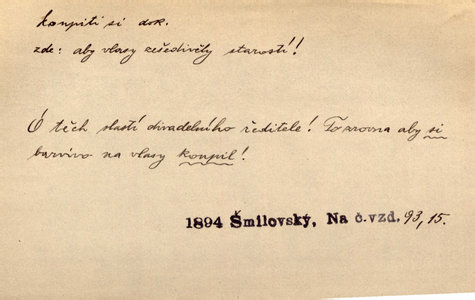 koupiti si dok.
zde: aby vlasy zešedivěly starostí!
Ó těch slastí divadelního ředitele! To zrovna aby si
barvivo na vlasy koupil!
1894 Šmilovský, Na č.vzd. 93, 15.